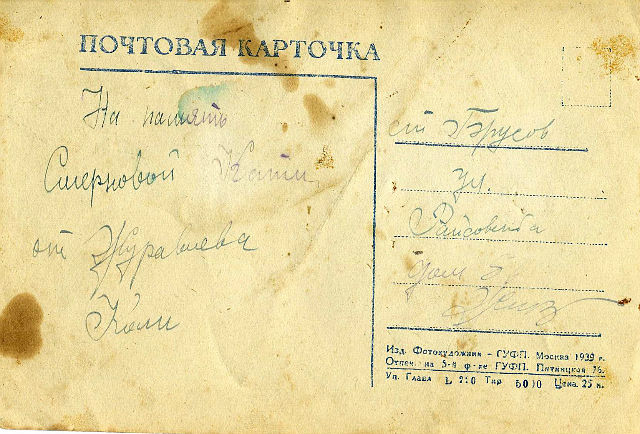 ПОЧТОВАЯ КАРТОЧКА
На память
Смерновой Кати
от Журавлева
Коли
ст
ул.
Райсовета
дом
Изд. Фотохудожник - ГУФП. Москва 1939 г.
Отпеч. на 5-й ф-ке ГУФП. Пятницкая 76.
Уп. Главл L 210 Тир 5000 Цена 25 к.